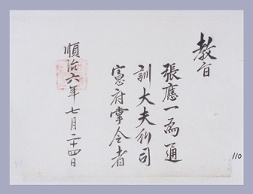 教旨
張應一為通
訓大夫行司
憲府掌令者
順治六年七月二十四日
110